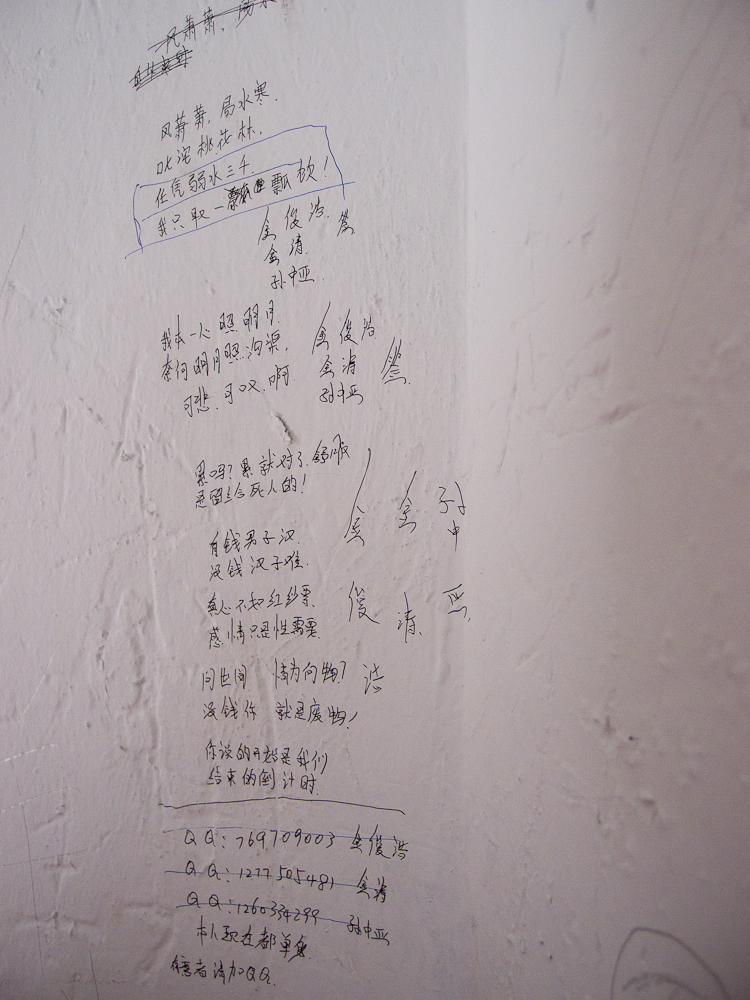 风萧萧，易水
风萧萧，易水寒.
叱咤桃花林.
任凭弱水三千.
我只取一瓢饮!
金俊浩 签
金清
孙中亚
我本一心照明月
奈何明月照沟渠.
可悲.可叹.啊
金俊浩
金清 签
孙中亚
累吗?累就对了.舒服
是留给死人的!
有钱男子汉.
没钱汉子难.
真心不如红钞票
感情只是性需要
问世间 情为何物?
没钱你 就是废物!
金 金 孙
俊 清 中
浩 亚
你说的开始是我们
结束的倒计时
QQ:769709003 金俊浩
QQ:1277505481 金清
QQ:1260334299 孙中亚
本人现在都单身
有意者请加QQ